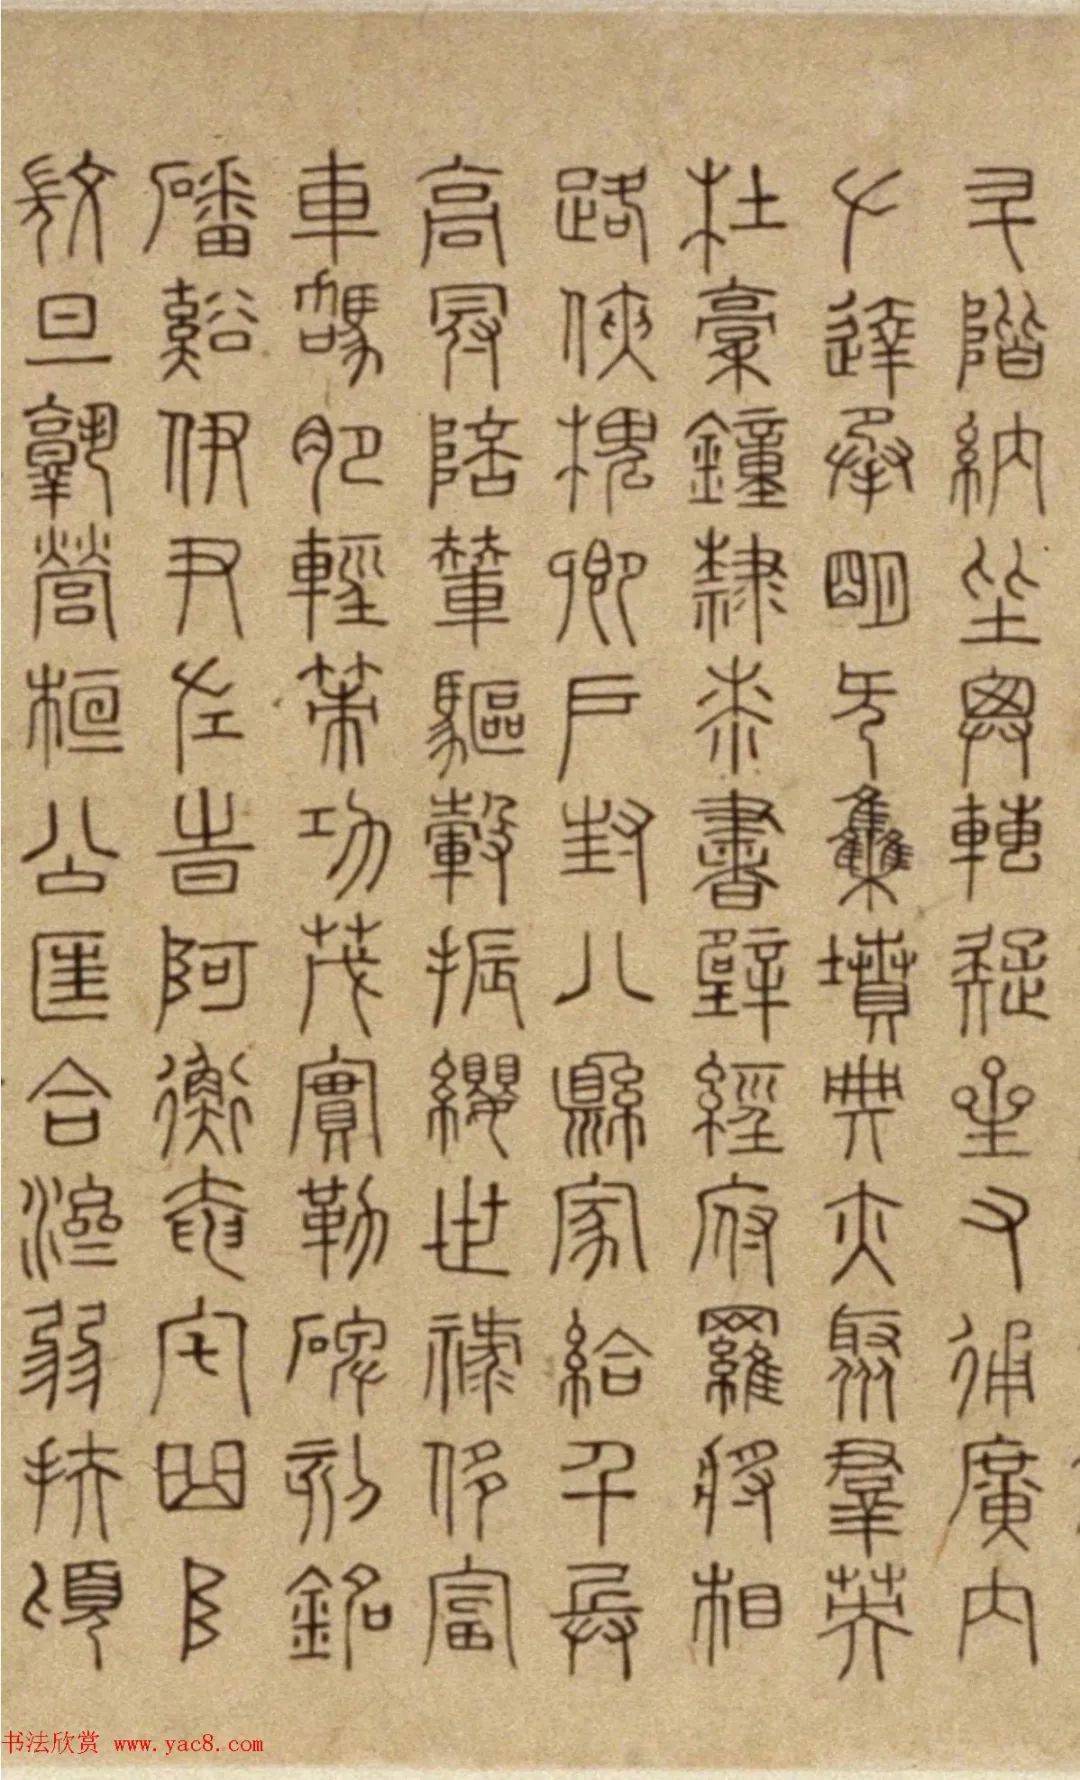 升階納陛弁轉疑星右通廣內
左達承明既集墳典亦聚群英
杜稾鐘隸漆書壁經府羅將相
路俠槐卿戶封八縣家給千兵
高冠陪輦驅轂振纓世祿侈富
車駕肥輕策功茂實勒碑刻銘
磻谿伊尹佐時阿衡奄宅曲阜
微旦孰營桓公匡合濟弱扶傾
书法欣赏 www.yac8.com